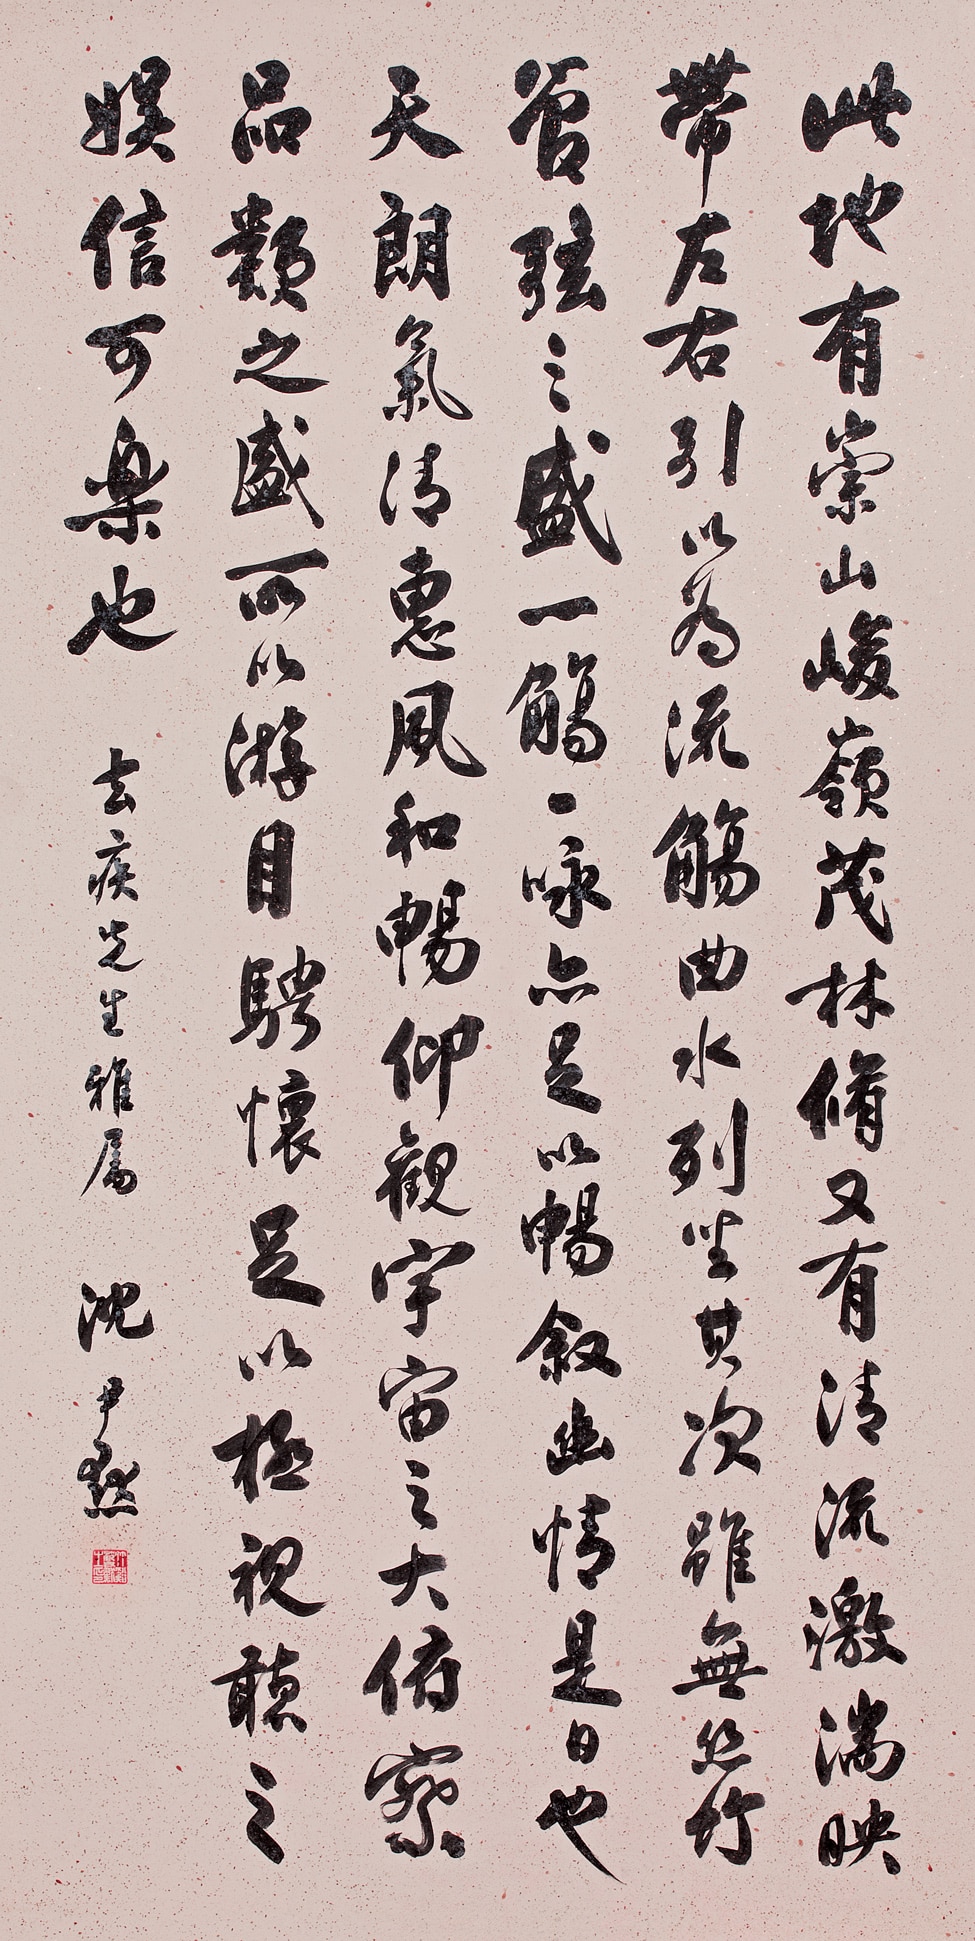 此地有崇山峻嶺茂林脩又有清流激湍映
帶左右引以為流觴曲水列坐其次雖無絲竹
管弦之盛一觴一咏亦足以暢叙幽情是日也
天朗氣清惠風和暢仰觀宇宙之大俯察
品類之盛所以游目騁懷足以極視聽之
娱信可楽也 去疾先生雅属 沈尹默